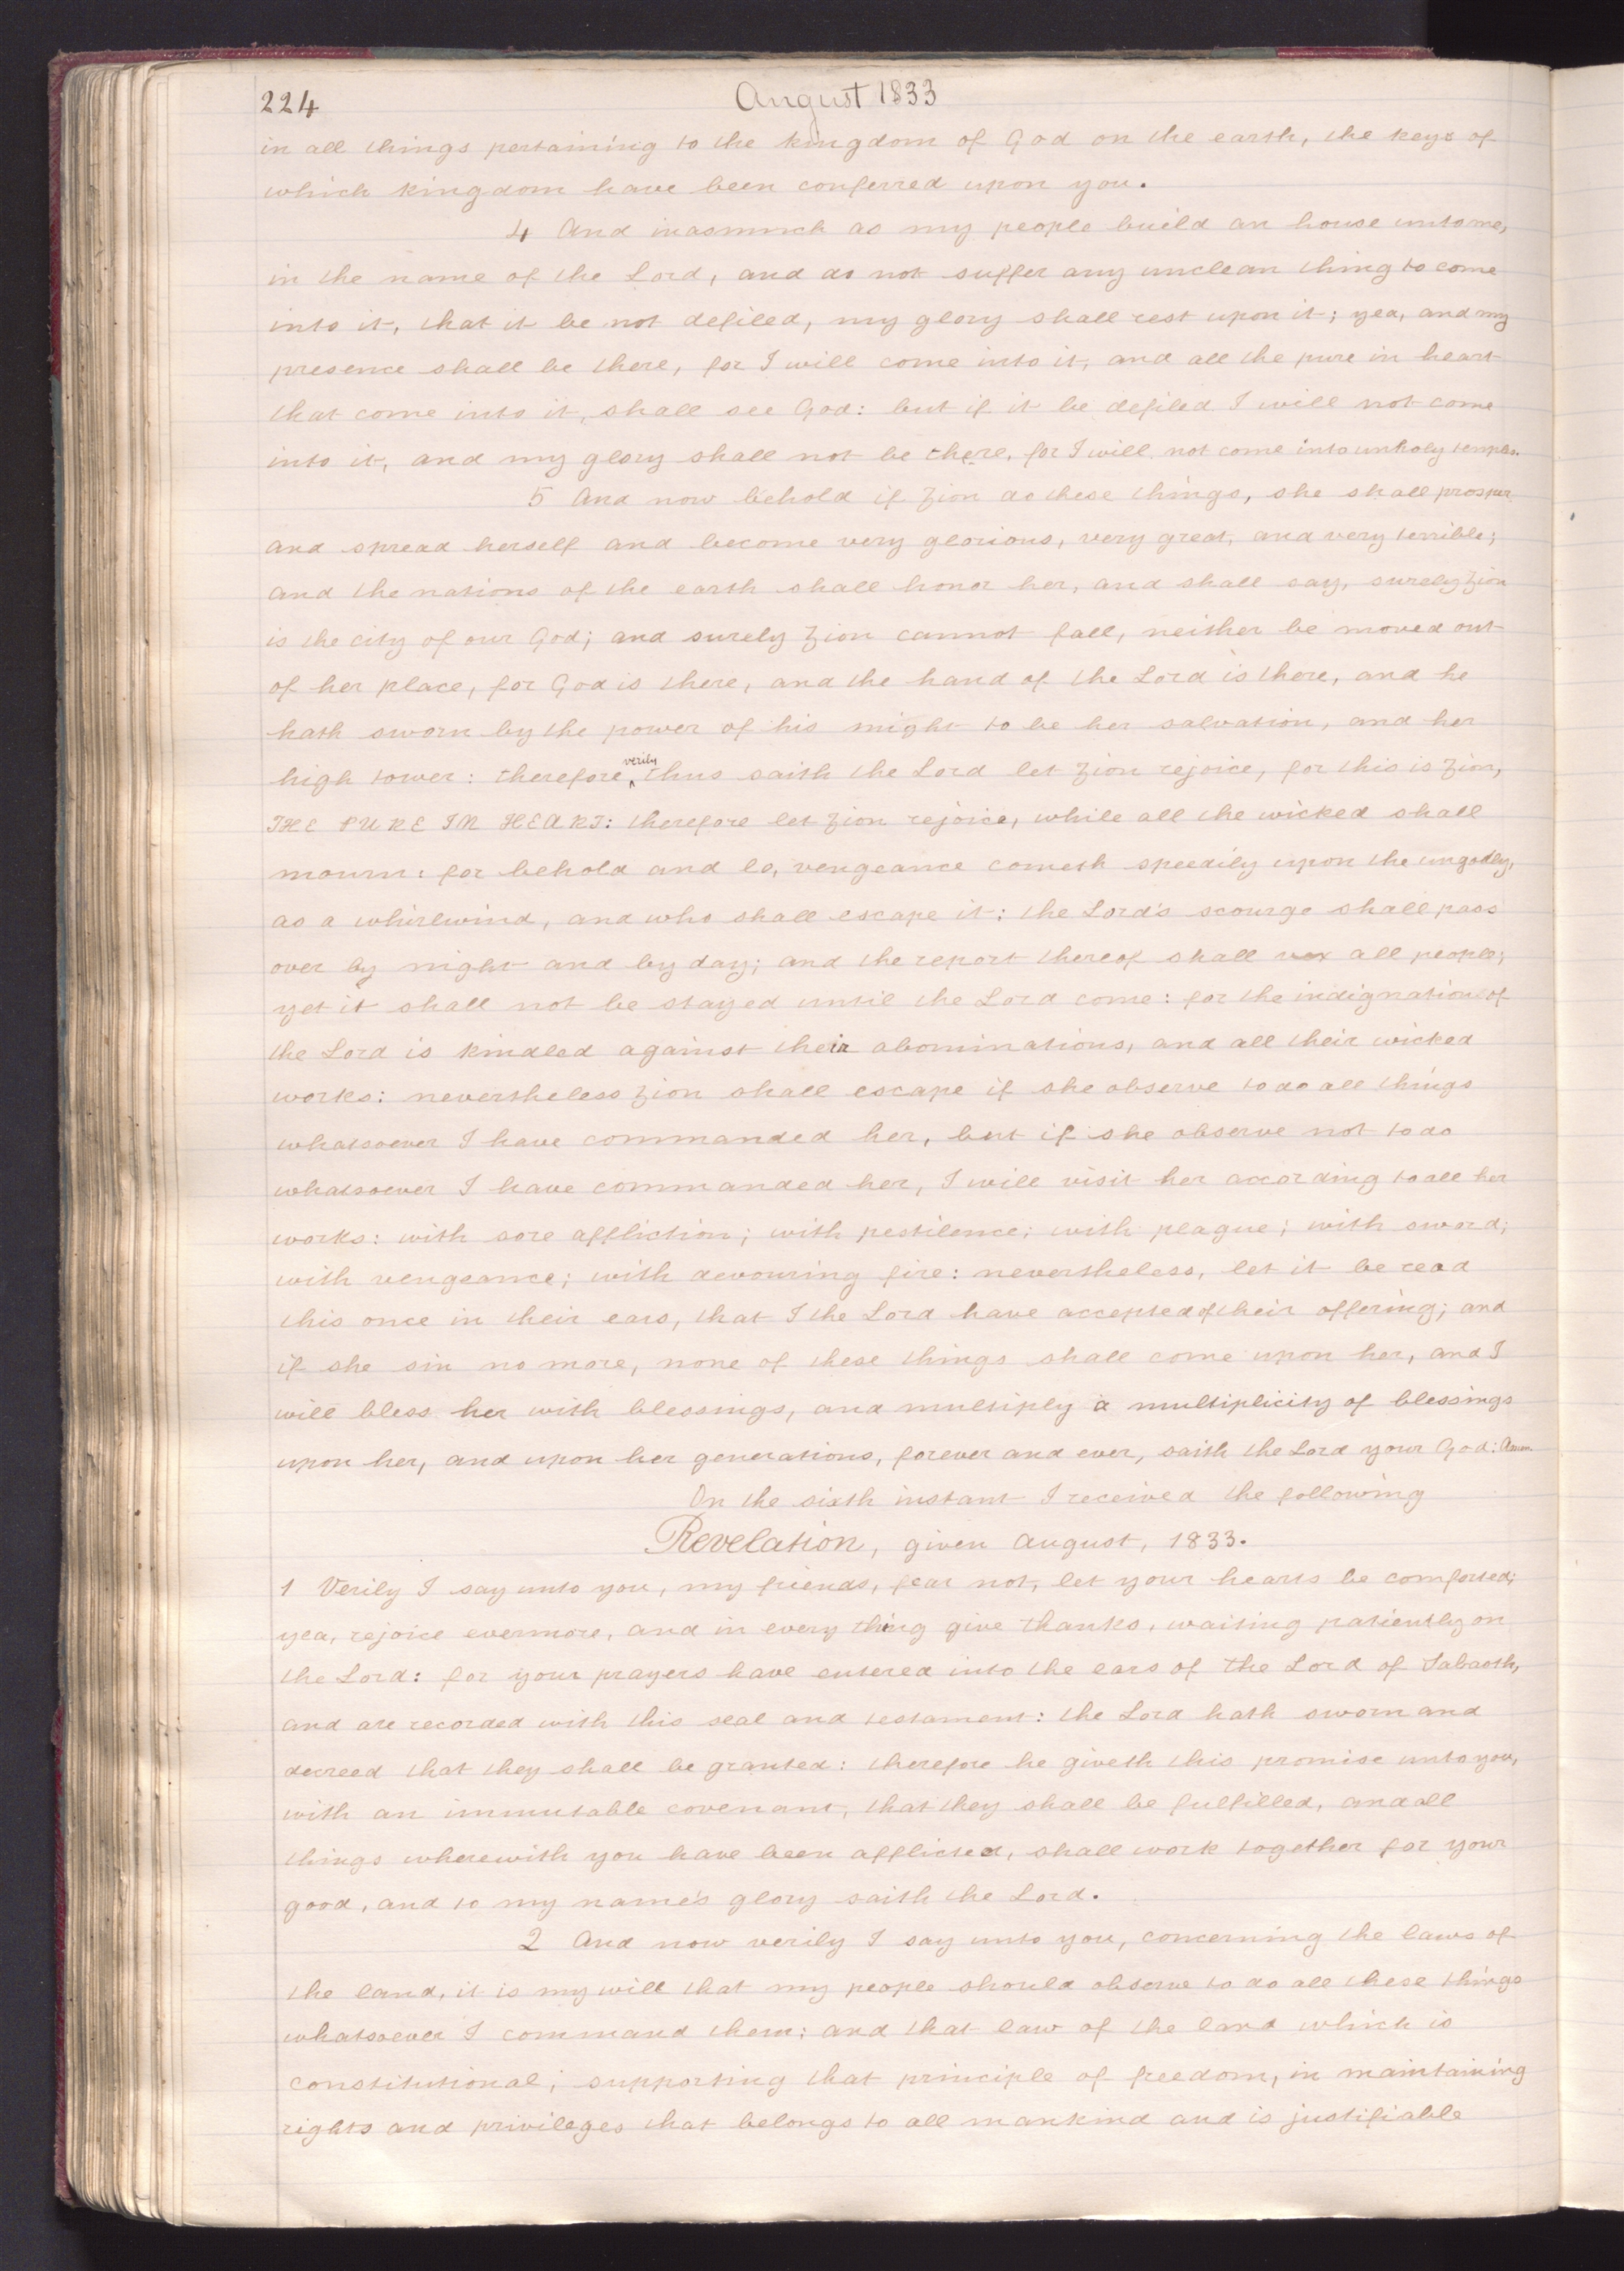 224
August 1833
in all things pertaining to the kingdom of God on the earth, the keys of
which kingdom have been conferred upon you.
4 And inasmuch as my people build an house unto me,
in the name of the Lord, and do not suffer any unclean thing to come
into it, that it be not defiled, my glory shall rest upon it; yea, and my
presence shall be there, for I will come into it, and all the pure in heart
that come into it, shall see God: but if it be defiled I will not come
into it, and my glory shall not be there, for I will not come into unholy temples.
5 And now behold if Zion do these things, she shall prosper
and spread herself and become very glorious, very great, and very terrible;
and the nations of the earth shall honor her, and shall say, surely Zion
is the city of our God; and surely Zion cannot fall, neither be moved out
of her place, for God is there, and the hand of the Lord is there, and he
hath sworn by the power of his might to be her salvation, and her
high tower: therefore, verily thus saith the Lord let Zion rejoice, for this is Zion,
THE PURE IN HEART: therefore let Zion rejoice, while all the wicked shall
mourn: for behold and lo, vengeance cometh speedily upon the ungodly,
as a whirlwind, and who shall escape it: the Lord's scourge shall pass
over by night and by day; and the report thereof shall vex all people;
yet it shall not be stayed until the Lord come: for the indignation of
the Lord is kindled against their abominations, and all their wicked
works: nevertheless Zion shall escape if she observe to do all things
whatsoever I have commanded her, but if she observe not to do
whatsoever I have commanded her, I will visit her according to all her
works: with sore affliction; with pestilence; with plague; with sword;
with vengeance; with devouring fire: nevertheless, let it be read
this once in their ears, that I the Lord have accepted of their offering; and
if she sin no more, none of these things shall come upon her, and I
will bless her with blessings, and multiply a multiplicity of blessings
upon her, and upon her generations, forever and ever, saith the Lord your God: Amen.
On the sixth instant I received the following
Revelation, given August, 1833.
1 Verily I say unto you, my friends, fear not, let your hearts be comforted;
yea, rejoice evermore, and in every thing give thanks, waiting patiently on
the Lord: for your prayers have entered into the ears of the Lord of Sabaoth,
and are recorded with this seal and testament: the Lord hath sworn and
decreed that they shall be granted: therefore he giveth this promise unto you,
with an immutable covenant, that they shall be fulfilled, and all
things wherewith you have been afflicted, shall work together for your
good, and to my name's glory saith the Lord.
2 And now verily I say unto you, concerning the laws of
the land, it is my will that my people should observe to do all these things
whatsoever I command them; and that law of the land which is
constitutional; supporting that principle of freedom, in maintaining
rights and privileges that belongs to all mankind and is justifiable